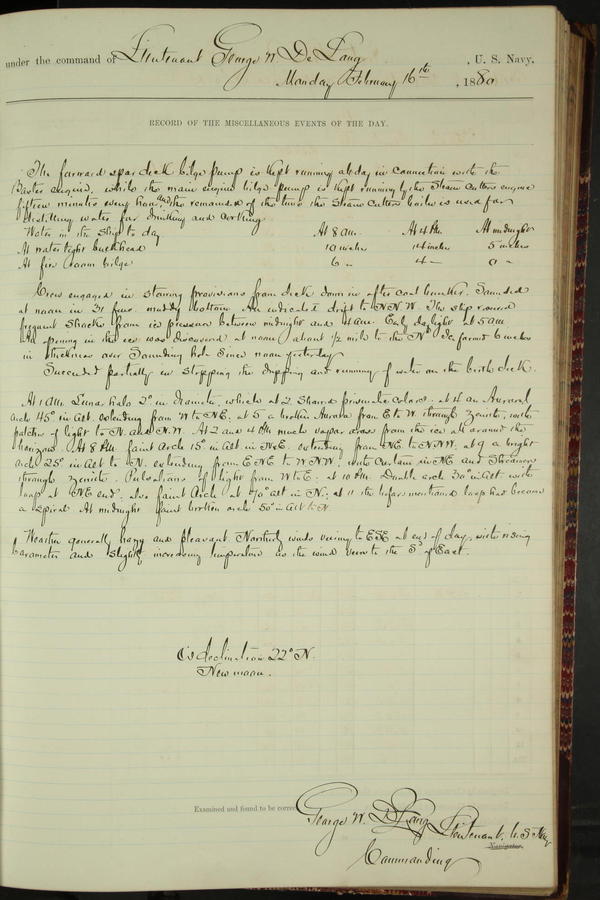 under the command of Lieutenant George W. De Long, U. S. Navy,
Monday February 16th, 1880
RECORD OF THE MISCELLANEOUS EVENTS OF THE DAY.
The forward spar deck bilge pump is kept running all day in connection with the
Baxter engine, while the main engine bilge pump is kept running by the Steam Cutters engine
fifteen minutes every hour, and the remainder of the time the Steam Cutters boiler is used for
distilling water for drinking and cooking
Water in the ship to day At 8 am. At 4 PM. At midnight
At water tight bulkhead 10 inches 14 inches 5 inches
At fire room bilge 6 " 4 "
Crew engaged in stowing provisions from deck down in after coal bunker. Sounded
at noon in 31 fms. muddy bottom. An indicated drift to NNW. The ship received
frequent shocks from ice pressure between midnight and 4 am. Early daylight at 5 am
opening in the ice was discovered at noon about 1/2 mile to the Nd. Ice formed 6 inches
in thickness over Sounding hole since noon yesterday.
Succeeded partially in stopping the dripping and running of water on the berth deck.
At 1 AM. Lunar halo 2° in diameter, which at 2 Shared prismatic colors. at 4 an Auroral
arch 45° in alt. extending from W to NE, at 5 a broken Aurora from E to W. through zenith, with
patches of light to N. and N.W. At 2 and 4 PM much vapor arose from the ice all around the
horizon. At 8 PM. faint Arch 15° in alt in N&E. extending from NE to NNW; at 9 a bright
arch 25° in alt to N. extending from ENE to WNW, with Curtain in NE and Streamers
through zenith. Pulsations of light from W to E. at 10 PM. Double arch 30° in alt with
loop at NE end; also faint Arch at 70° alt in N.; at 11 the before mentioned loop has become
a Spiral. At midnight faint broken arch 50° in alt to N
Weather generally hazy and pleasant. Northerly winds veering to ESE at end of day, with rising
barometer and slightly increasing temperature as the wind veers to the Sd of East.
declination 22° N.
New moon.
Examined and found to be correct
George W. De Long Lieutenant. U. S. Navy
Navigator.
Commanding